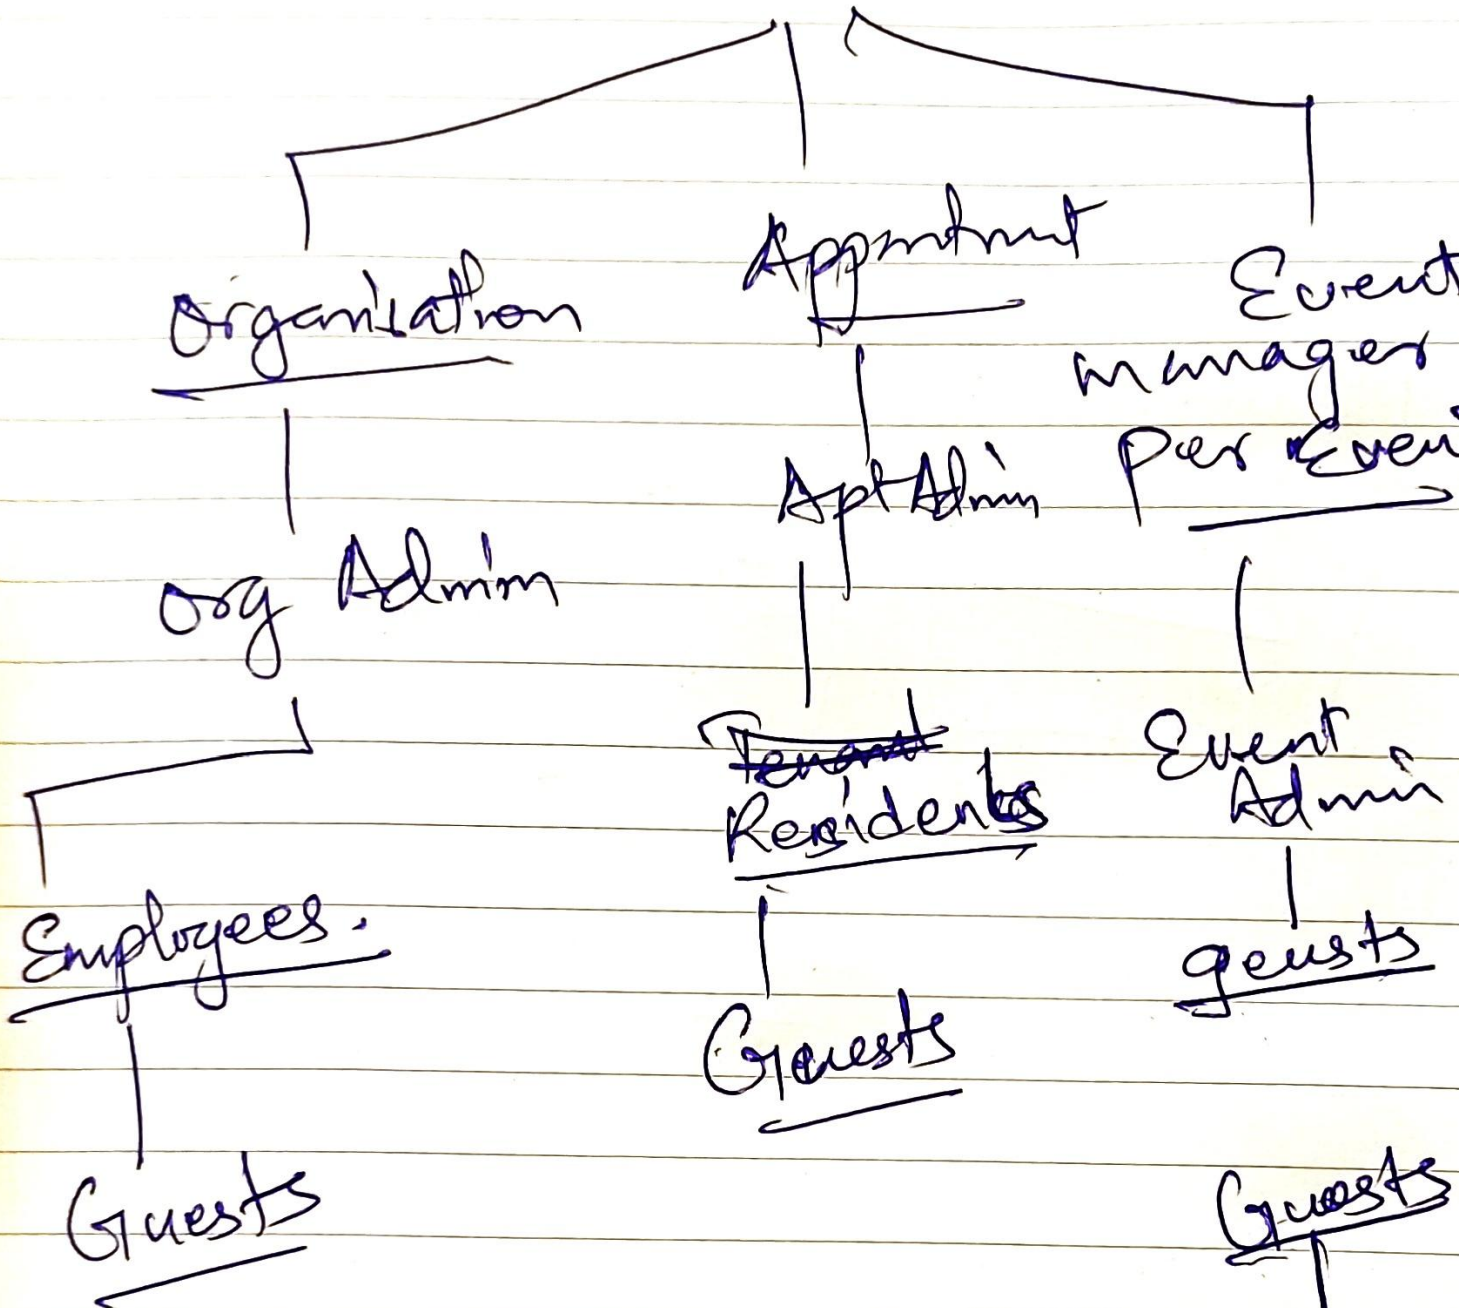 Organisation
Org Admin
Employees.
Guests
Appartment
Apt Admin
Tenant
Residents
Guests
Event
manager
per Even
Event
Admin
geusts
Guests